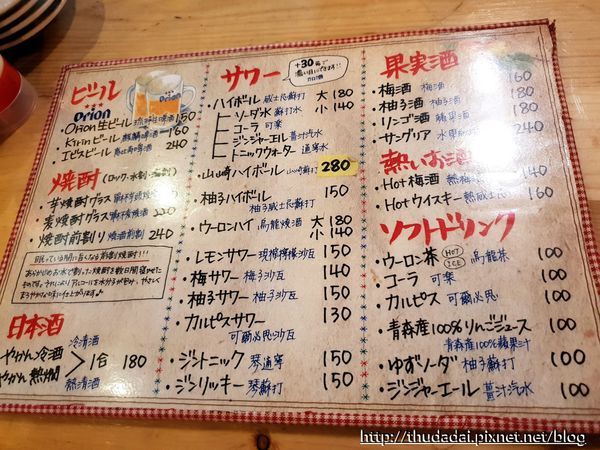 ビール
Orion
Orion
・Orion生ビール 琉球生啤酒 150
・Kirinビール 麒麟啤酒 160
・エビスビール 惠比壽啤酒 240
焼酎 (ロック・水割・お湯割)
・芋焼酎グラス
・麦焼酎グラス 240
・焼酎前割り 燒酒前割 240
日本酒
やかん冷酒 冷清酒
> 1合 180
やかん熱燗 熱清酒
サワー
+30
濃い目にできます!!
・ハイボール 威士忌蘇打 大 180
小 140
ソーダ水 蘇打
コーラ 可樂
ジンジャーエール 薑汁汽水
トニックウォーター 通寧水
・山崎ハイボール 山崎蘇打 280
・柚子ハイボール 150
柚子威士忌蘇打
・ウーロンハイ 烏龍燒酒 大 180
小 140
・レモンサワー 現榨檸檬沙瓦 150
・梅サワー 梅子沙瓦 140
・柚子サワー 柚子沙瓦 150
・カルピスサワー 130
可爾必思沙瓦
・ジントニック 琴通寧 150
・ジンリッキー 琴蘇打 150
果実酒
・梅酒 梅酒 160
・柚子酒 柚子酒 160
・リンゴ酒 蘋果酒
・サングリア 水果 140
熱いお酒
・Hot梅酒 熱梅酒
・Hotウイスキー 熱威士忌 160
ソフトドリンク
・ウーロン茶 HOT ICE 烏龍茶 100
・コーラ 可樂 100
・カルピス 可爾必思 100
・青森産100%りんごジュース 100
青森產100%蘋果汁
・ゆずソーダ 柚子蘇打 100
・ジンジャーエール 薑汁汽水 100
http://thudadai.pixnet.net/blog